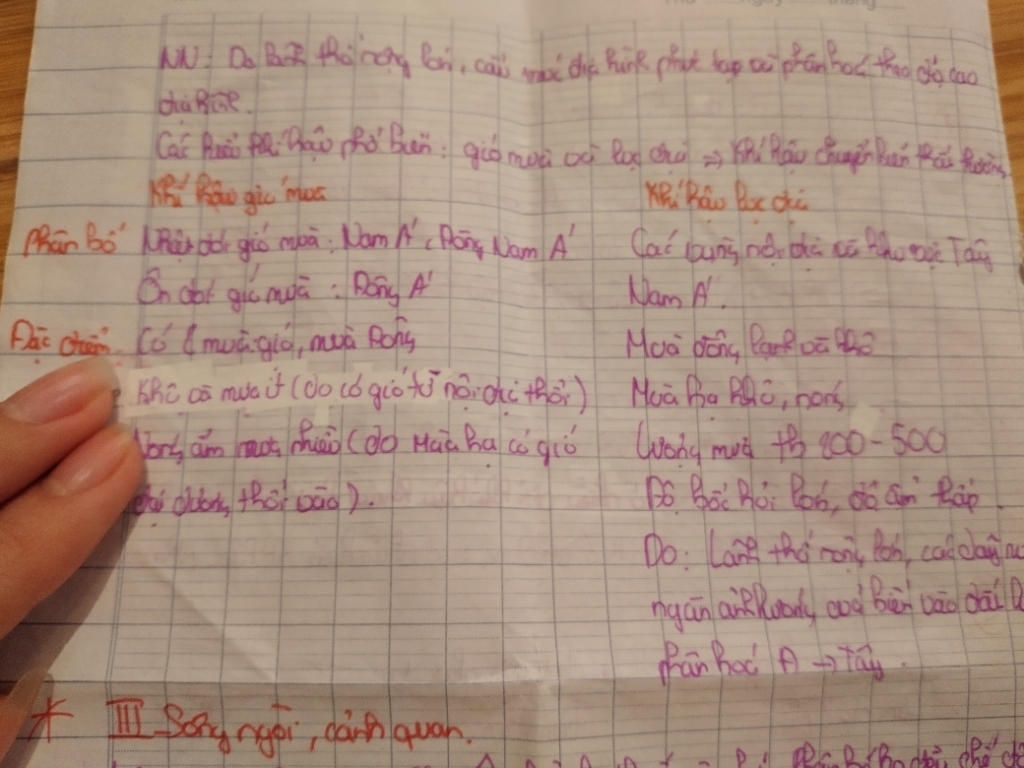 NN: Do lãnh thổ rộng lớn, cấu trúc địa hình phức tạp và phân hoá theo độ cao
địa hình.
Các kiểu khí hậu phổ biến: gió mùa và lục địa => Khí hậu chuyển biến thất thường
Khí hậu gió mùa
Khí hậu lục địa
Phân bố Nhiệt đới gió mùa: Nam Á, Đông Nam Á
Các vùng nội địa và khu vực Tây
Ôn đới gió mùa: Đông Á
Nam Á.
Đặc điểm Có 2 mùa gió, mùa Đông
Mùa đông lạnh và khô
Khô và mưa ít (do có gió từ nội địa thổi)
Mùa hạ khô, nóng
Nóng ẩm mưa nhiều (do Mùa hạ có gió
Lượng mưa tb 200-500
đại dương thổi vào).
Độ bốc hơi lớn, độ ẩm thấp.
Do: Lãnh thổ rộng lớn, các dãy nú
ngăn ảnh hưởng của biển vào đất
phân hoá Đ → Tây.
* III Sông ngòi, cảnh quan.